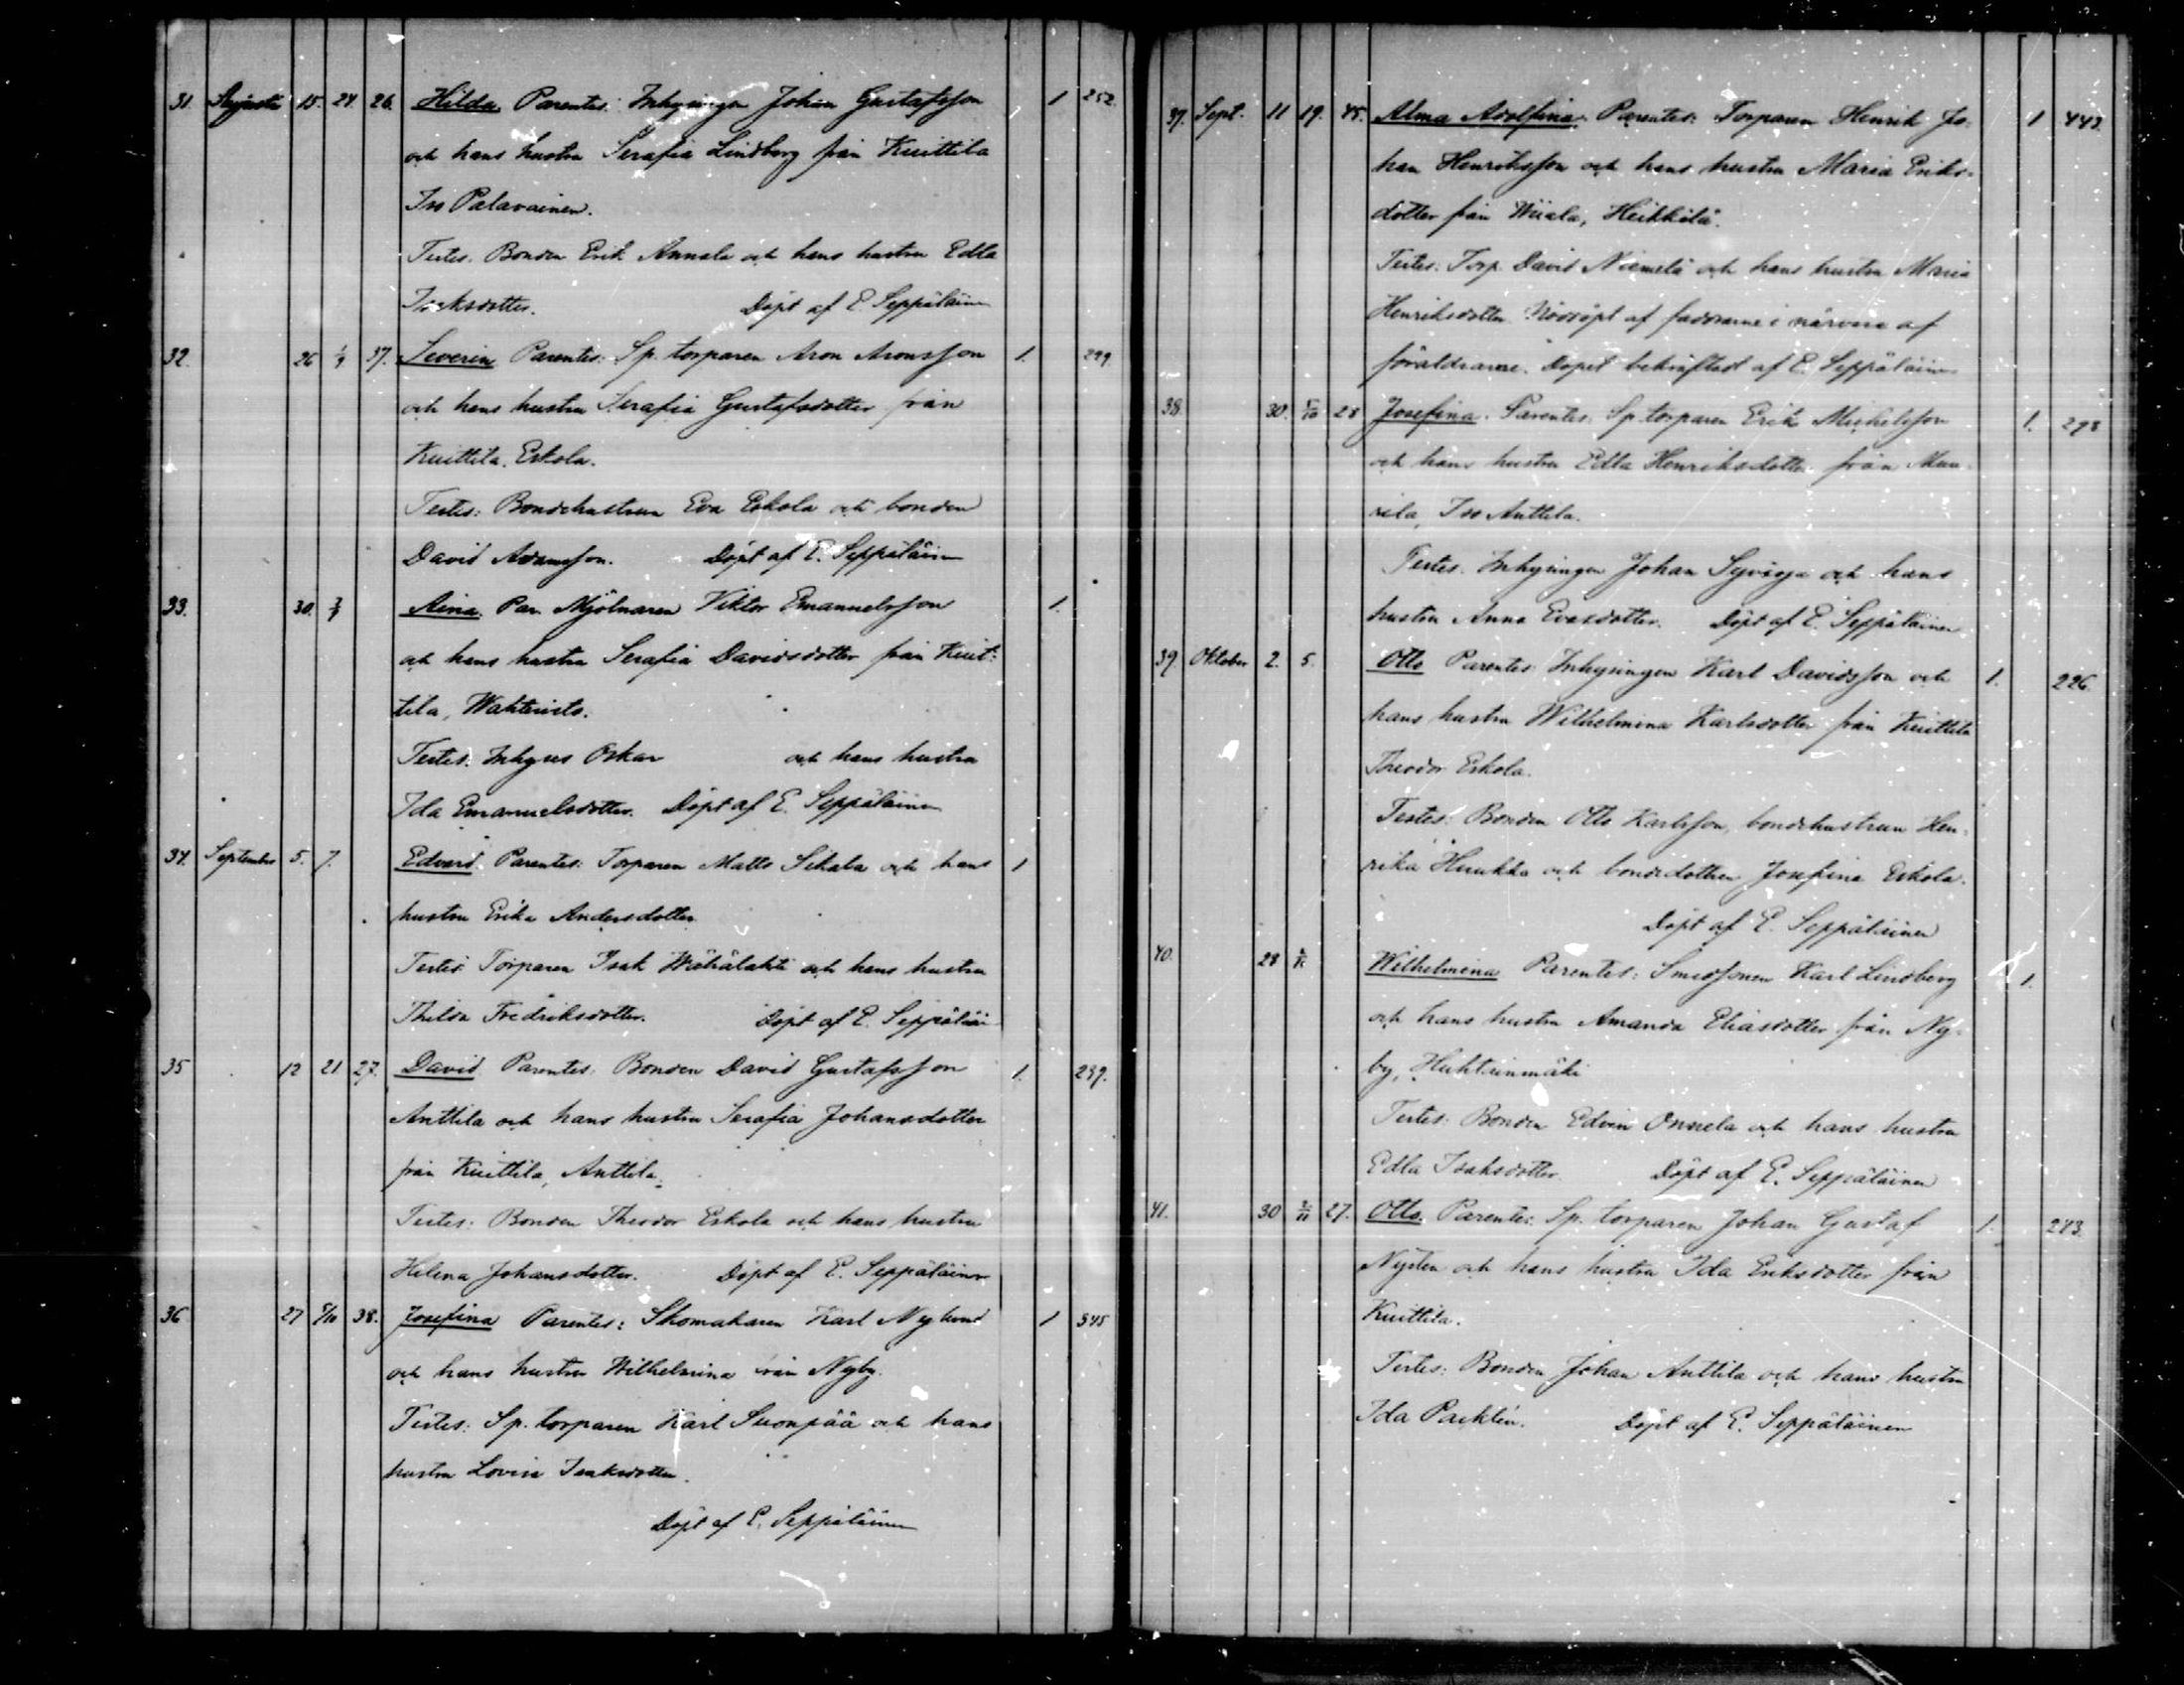 31. Augusti 15. 24. 26. Hilda Parentes: Inhysingen Johan Gustafsson 1 252
och hans hustru Serafia Lindberg från Kuittila
Iso Palavainen.
Testes. Bonden Erik Annala och hans hustru Edla
Isaksdotter. Döpt af E. Seppäläinen
32. 26 1/9 37. Severin Parentes: Sp. torparen Aron Aronsson 1. 299.
och hans hustru Serafia Gustafsdotter från
Kuittila. Eskola.
Testes: Bondehustrun Eva Eskola och bonden
David Adamsson. Döpt af E. Seppäläinen
33. 30. Aina. Par. Mjölnaren Viktor Emanuelsson 1.
och hans hustru Serafia Davidsdotter från Kuit-
tila, Wahteristo.
Testes: Inhyses Oskar och hans hustru
Ida Emanuelsdotter. Döpt af E. Seppäläinen
34. September 5. 7. Edvard. Parentes: Torparen Matts Sikala och hans 1
hustru Erika Andersdotter
Testes Torparen Isak och hans hustru
Thilda Fredriksdotter. Döpt af E. Seppäläin
35 12 21 27. David Parentes. Bonden David Gustafsson 1. 239.
Anttila och hans hustru Serafia Johansdotter
från Kuittila, Anttila.
Testes: Bonden Theodor Eskola och hans hustru
Helena Johansdotter. Döpt af E. Seppäläinen
36 27 5/10 38. Josefina Parentes: Skomakaren Karl Nylund 1 345
och hans hustru Wilhelmina från Nyby.
Testes: Sp. torparen Karl Suonpää och hans
hustru Lovisa Isaksdotter.
Döpt af E. Seppäläinen
37. Sept. 11 19. 45. Alma Adolfina. Parentes: Torparen Henrik Jo- 1 443.
han Henriksson och hans hustru Maria Eriks-
dotter från Wiiala, Heikkilä.
Testes: Torp. David Niemelä och hans hustru Maria
Henriksdotter. Nöddöpt af faddrarne i närvaro af
föräldrarne. Dopet bekräftadt af E. Seppäläinen
38. 30. 5/10 28 Josefina. Parentes. Sp torparen Erik Michelsson 1. 298
och hans hustru Edla Henriksdotter från Mau-
rila, Iso Anttila.
Testes. Inhysingen Johan Syvioja och hans
hustru Anna Evasdotter. Döpt af E. Seppäläinen
39. Oktober 2. 5. Otto Parentes Inhysingen Karl Davidsson och 1. 226.
hans hustru Wilhelmina Karlsdotter från Kuittila
Theodor Eskola.
Testes. Bonden Otto Karlsson, bondehustrun Hen-
rika Huukka och bondedottern Josefina Eskola.
Döpt af E. Seppäläinen
40. 28 Wilhelmina Parentes: Smedsonen Karl Lindberg 1.
och hans hustru Amanda Eliasdotter från Ny-
by, Huhtainmäki
Testes: Bonden Edvin Onnela och hans hustru
Edla Isaksdotter. Döpt af E. Seppäläinen
41. 30 2/11 27. Otto. Parentes. Sp. torparen Johan Gustaf 1. 283.
Nysten och hans hustru Ida Eriksdotter från
Kuittila.
Testes: Bonden Johan Anttila och hans hustru
Ida Packlén. Döpt af E. Seppäläinen